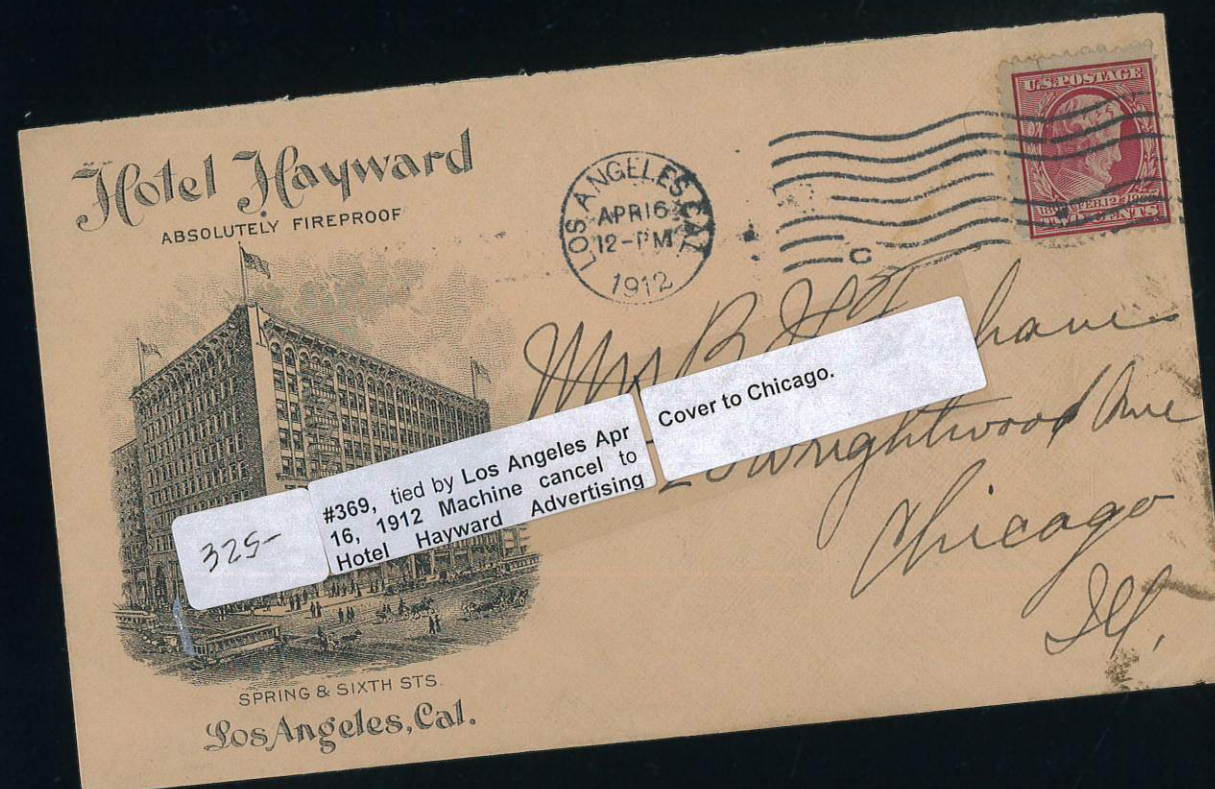 Hotel Hayward
ABSOLUTELY FIREPROOF
SPRING & SIXTH STS.
Los Angeles, Cal.
LOS ANGELES, CAL.
APR 16
12-PM
1912
C
U.S. POSTAGE
FEB. 12
TWO CENTS
Mrs B
Wrightwood Ave
Chicago
Ill.
325-
#369, tied by Los Angeles Apr
16, 1912 Machine cancel to
Hotel Hayward Advertising
Cover to Chicago.